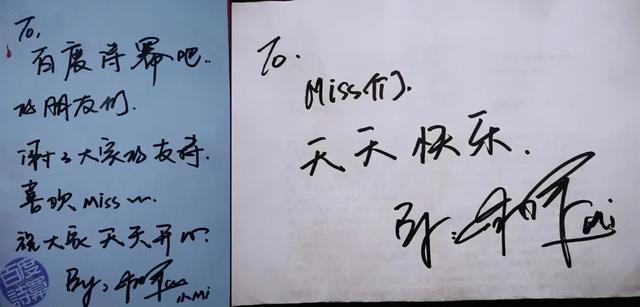 To,
百度诗幂吧..
的朋友们.
谢谢大家的支持.
喜欢 Miss~~.
祝大家 天天开心.
By: 小Mi
To.
Miss们.
天天快乐.
By: Mi